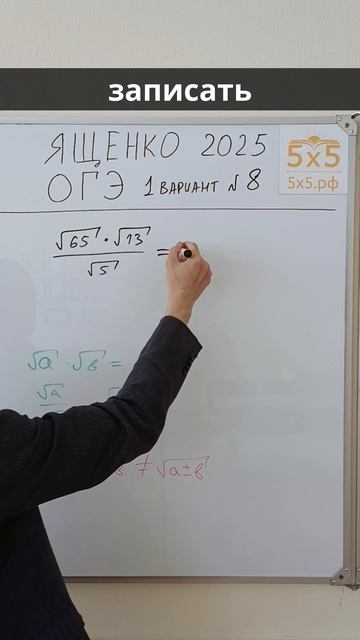 записать
ЯЩЕНКО 2025
ОГЭ 1 ВАРИАНТ № 8
5x5
5x5.рф
√65 · √13
√5
=
√a · √в =
√a
в ≠ √a±в